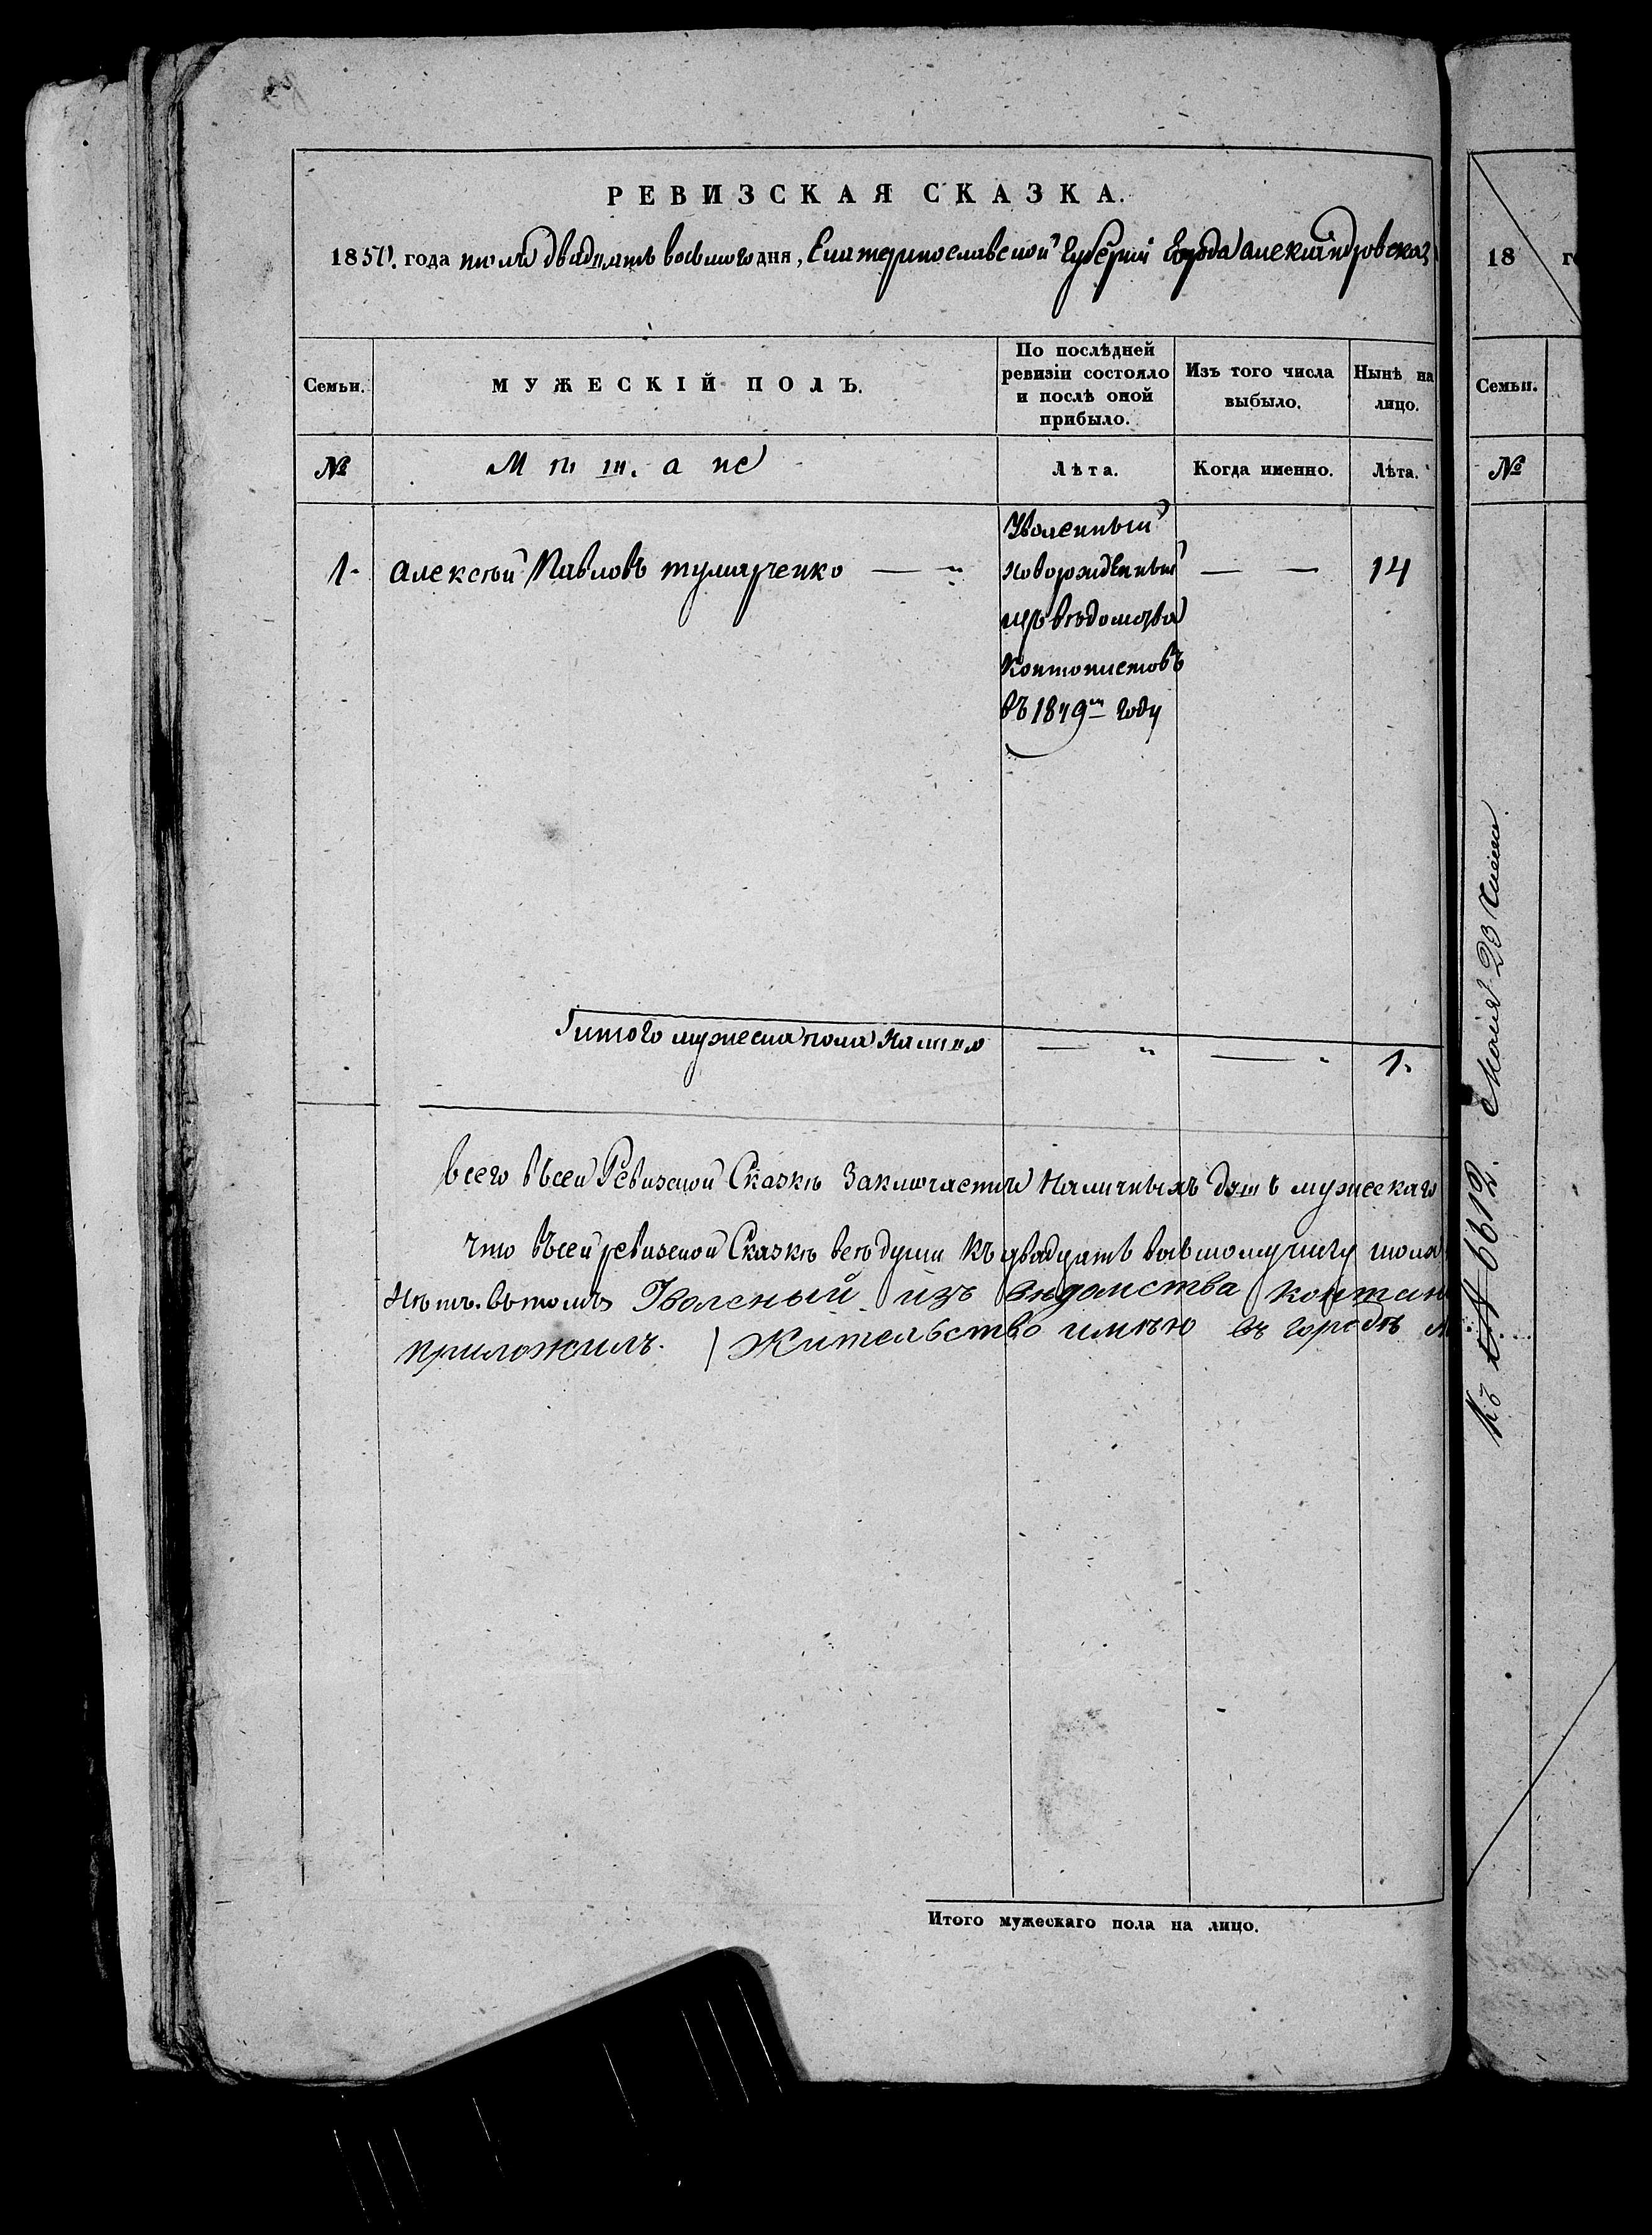 РЕВИЗСКАЯ СКАЗКА.
1857. года июля двадцать восьмого дня, Екатеринославской Губерніи Города Александровска
Семьи.
МУЖЕСКІЙ ПОЛЪ.
По послѣдней ревизіи состояло и послѣ оной прибыло.
Изъ того числа выбыло.
Нынѣ на лицо.
№
Мѣщане
Лѣта.
Когда именно.
Лѣта.
1. Алексѣй Павловъ
Уволенный
новорожденный
14
изъ вѣдомства
Кантонистовъ
въ 1849 году
итого мужеска пола налицо
1.
всего въ сей Ревизской Сказкѣ Заключается Наличныхъ душъ мужескаго
что въ сей ревизской Сказкѣ всѣ души къ двадцать восьмому июля
нѣтъ. въ томъ Уволеный изъ вѣдомства контон
приложилъ. Жительство имѣю въ городѣ
Итого мужескаго пола на лицо.
18 г
Семьи.
№
Къ № 6612. Маія 23 числа